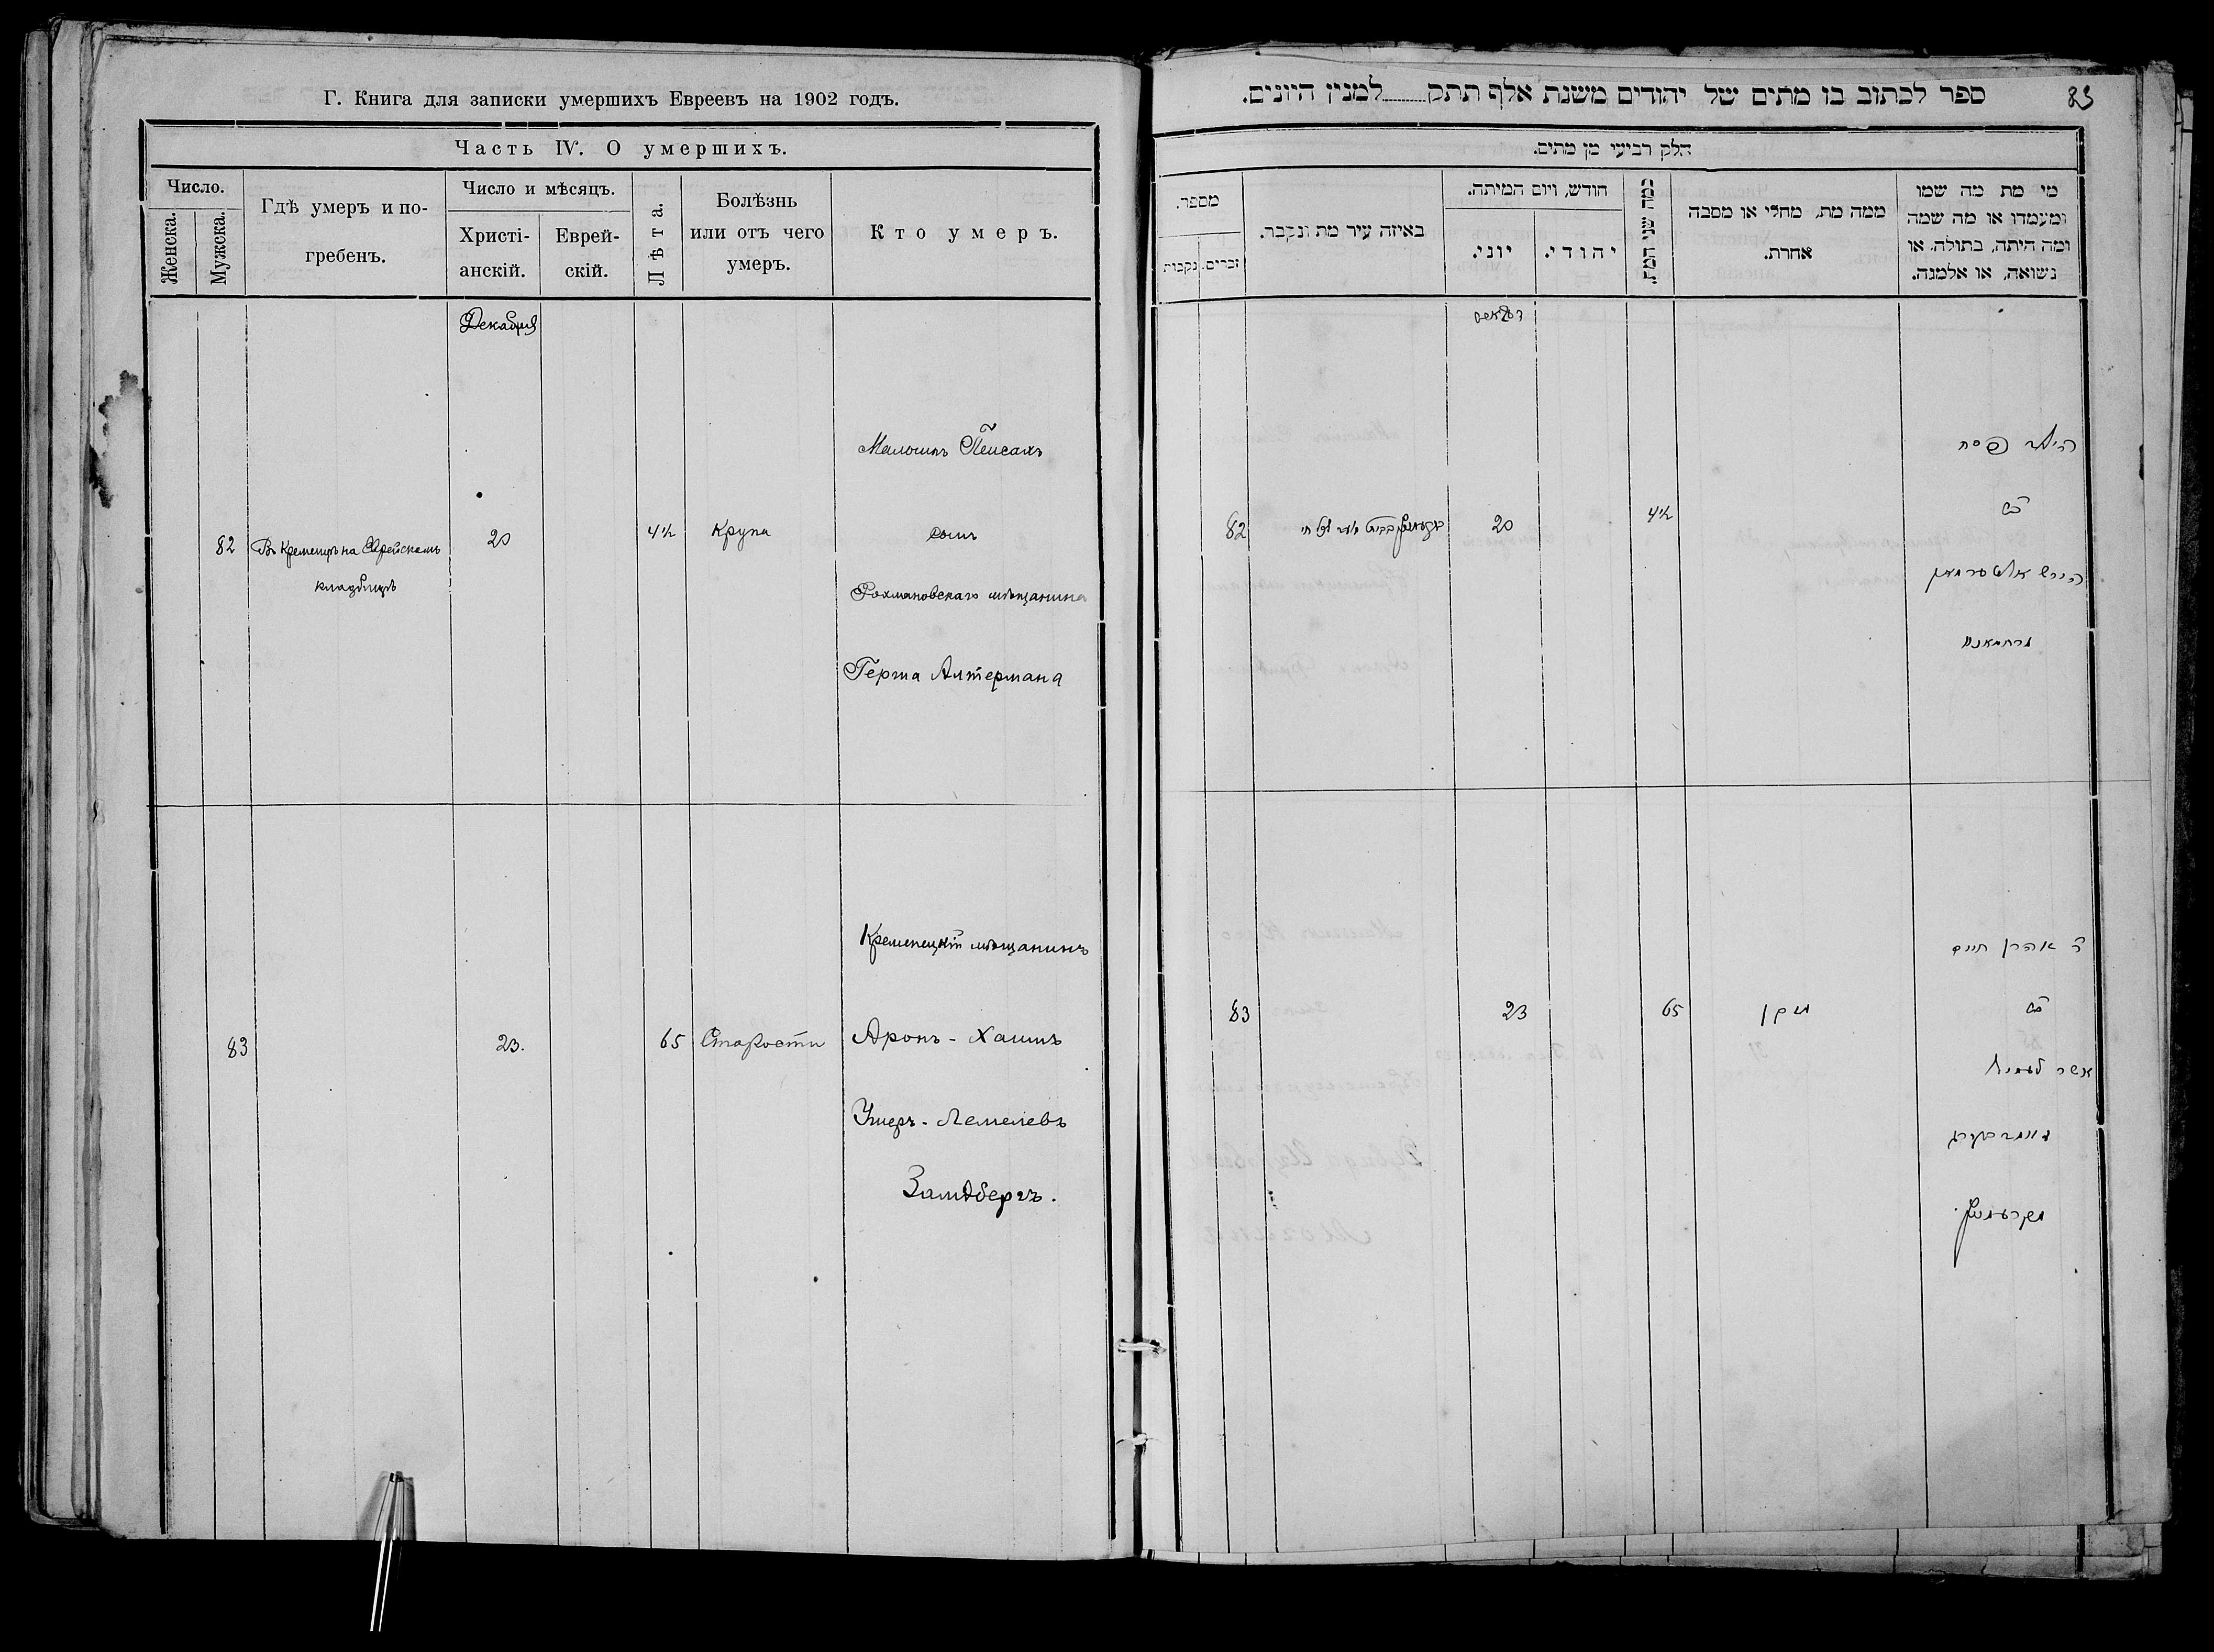 Г. Книга для записки умершихъ Евреевъ на 1902 годъ.
Часть IV. О умершихъ.
Число.
Женска.
Мужска.
Гдѣ умеръ и по-
гребенъ.
Число и мѣсяцъ.
Христі-
анскій.
Еврей-
скій.
Лѣта.
Болѣзнь
или отъ чего
умеръ.
Кто умеръ.
Декабря
82
Въ Кременцѣ на Еврейскомъ
кладбищѣ
20
4½
Крупа
Мальчикъ Пейсахъ
сынъ
Рохмановскаго мѣщанина
Герша Алтермана
83
23.
65
Старости
Кременецкій мѣщанинъ
Аронъ-Хаимъ
Ушеръ-Лемелевъ
Замдбергъ.
ספר לכתוב בו מתים של יהודים משנת אלף תתק למנין היונים.
83
חלק רביעי מן מתים.
מספר.
נקבות
זכרים.
באיזה עיר מת ונקבר.
חודש, ויום המיתה.
יוני.
יהודי.
כמה שני המת.
ממה מת, מחלי או מסבה
אחרת.
מי מת מה שמו
ומעמדו או מה שמה
ומה היתה, בתולה, או
נשואה, או אלמנה.
דעקאבר
82
20
4½
הילד פסח
ב״ר
הירש אלטערמאן
מרחמאנוב
83
23
65
זקן
ר׳ אהרן חיים
ב״ר
אשר לעמיל
זאמדבערג